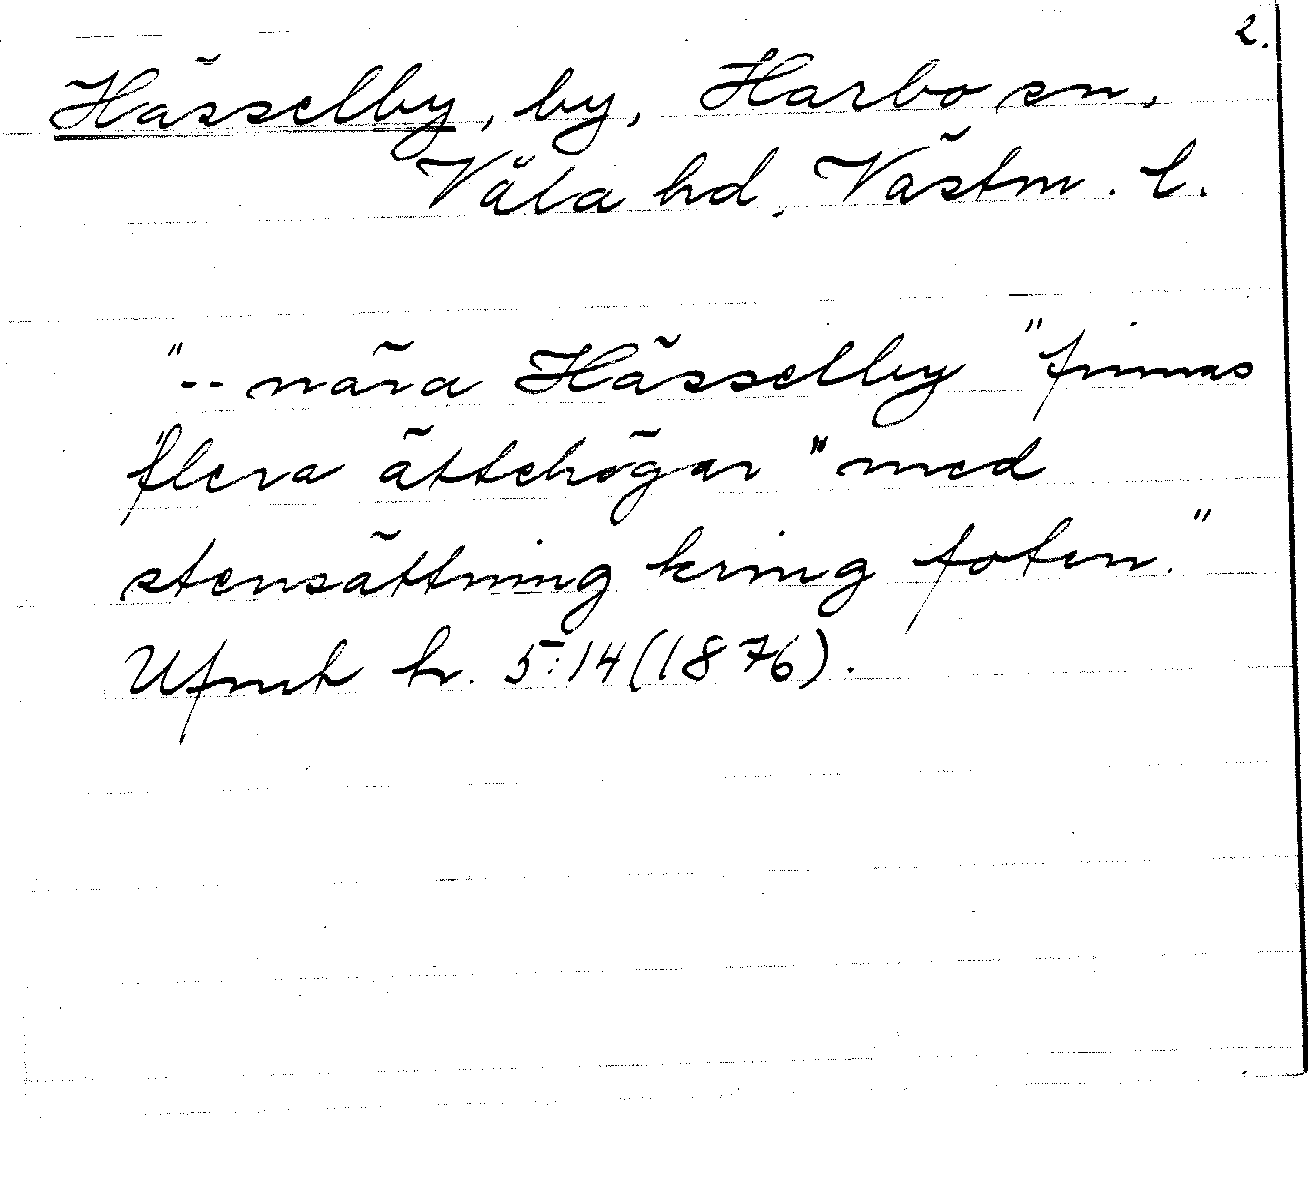 2.
Hässelby, by, Harbo sn,
Våla hd, Västm. l.
"-- nära Hässelby "finnas
"flera ättehögar "med
stensättning kring foten."
Ufmt h. 5:14 (1876).